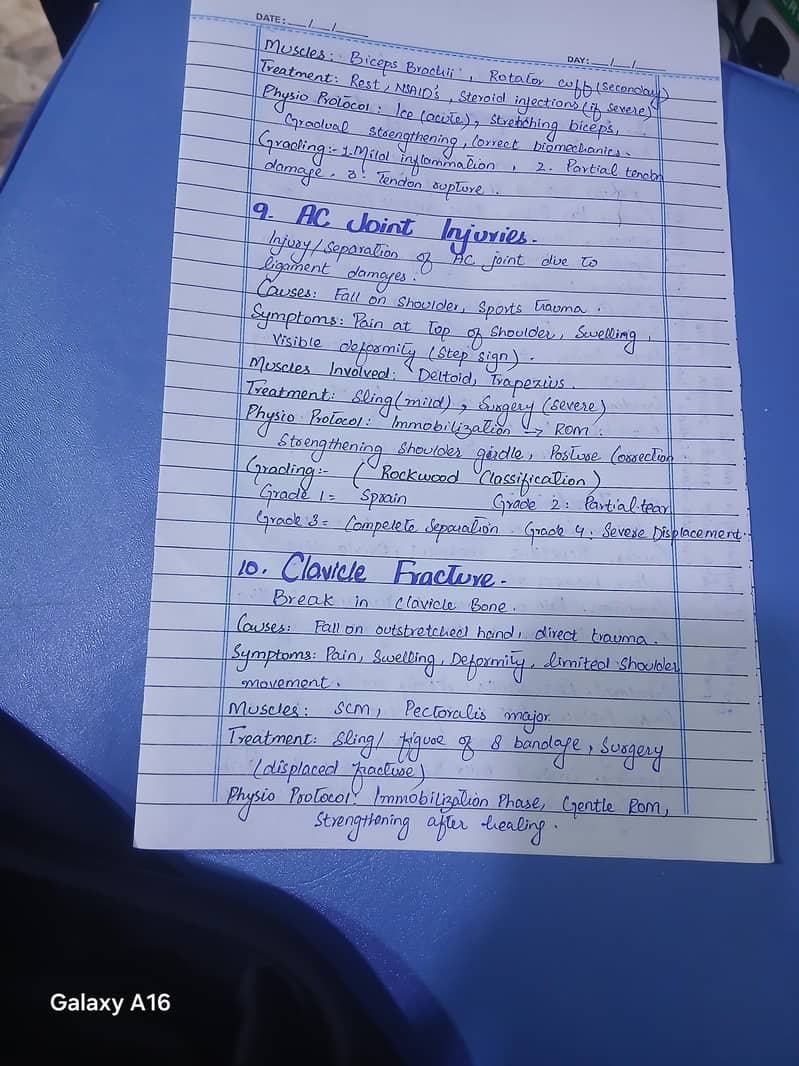 DATE: __/__/__
DAY: __/__/__
Muscles: Biceps Brachii, Rotator cuff (secondary)
Treatment: Rest, NSAID's, Steroid injections (if severe)
Physio Protocol: Ice (acute), stretching biceps,
Gradual strengthening, Correct biomechanics.
Grading:- 1. Mild inflammation, 2. Partial tendon
damage. 3. Tendon rupture.
9. AC Joint Injuries.
Injury/Separation of AC joint due to
ligament damages.
Causes: Fall on shoulder, sports trauma.
Symptoms: Pain at Top of shoulder, Swelling,
Visible deformity (Step sign).
Muscles Involved: Deltoid, Trapezius.
Treatment: Sling (mild), Surgery (severe)
Physio Protocol: Immobilization → ROM.
Strengthening shoulder girdle, Posture Correction.
Grading:- (Rockwood Classification)
Grade 1= Sprain Grade 2: Partial tear
Grade 3= Compelete Separation. Grade 4. Severe Displacement.
10. Clavicle Fracture.
Break in clavicle Bone.
Causes: Fall on outstretched hand, direct trauma.
Symptoms: Pain, Swelling, Deformity, limited shoulder
movement.
Muscles: SCM, Pectoralis major
Treatment: Sling/ figure of 8 bandage, Surgery
(displaced fracture)
Physio Protocol: Immobilization Phase, Gentle ROM,
Strengthening after healing.
Galaxy A16